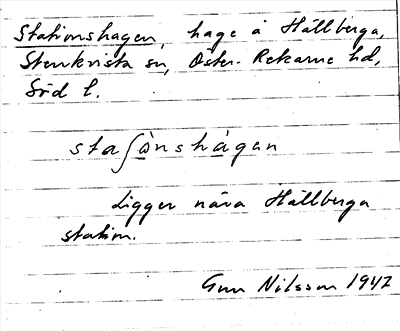 Stationshagen, hage å Hällberga,
Stenkvista sn, Öster-Rekarne hd,
Söd l.
staʃὰnshàgan
Ligger nära Hällberga
station.
Gun Nilsson 1942